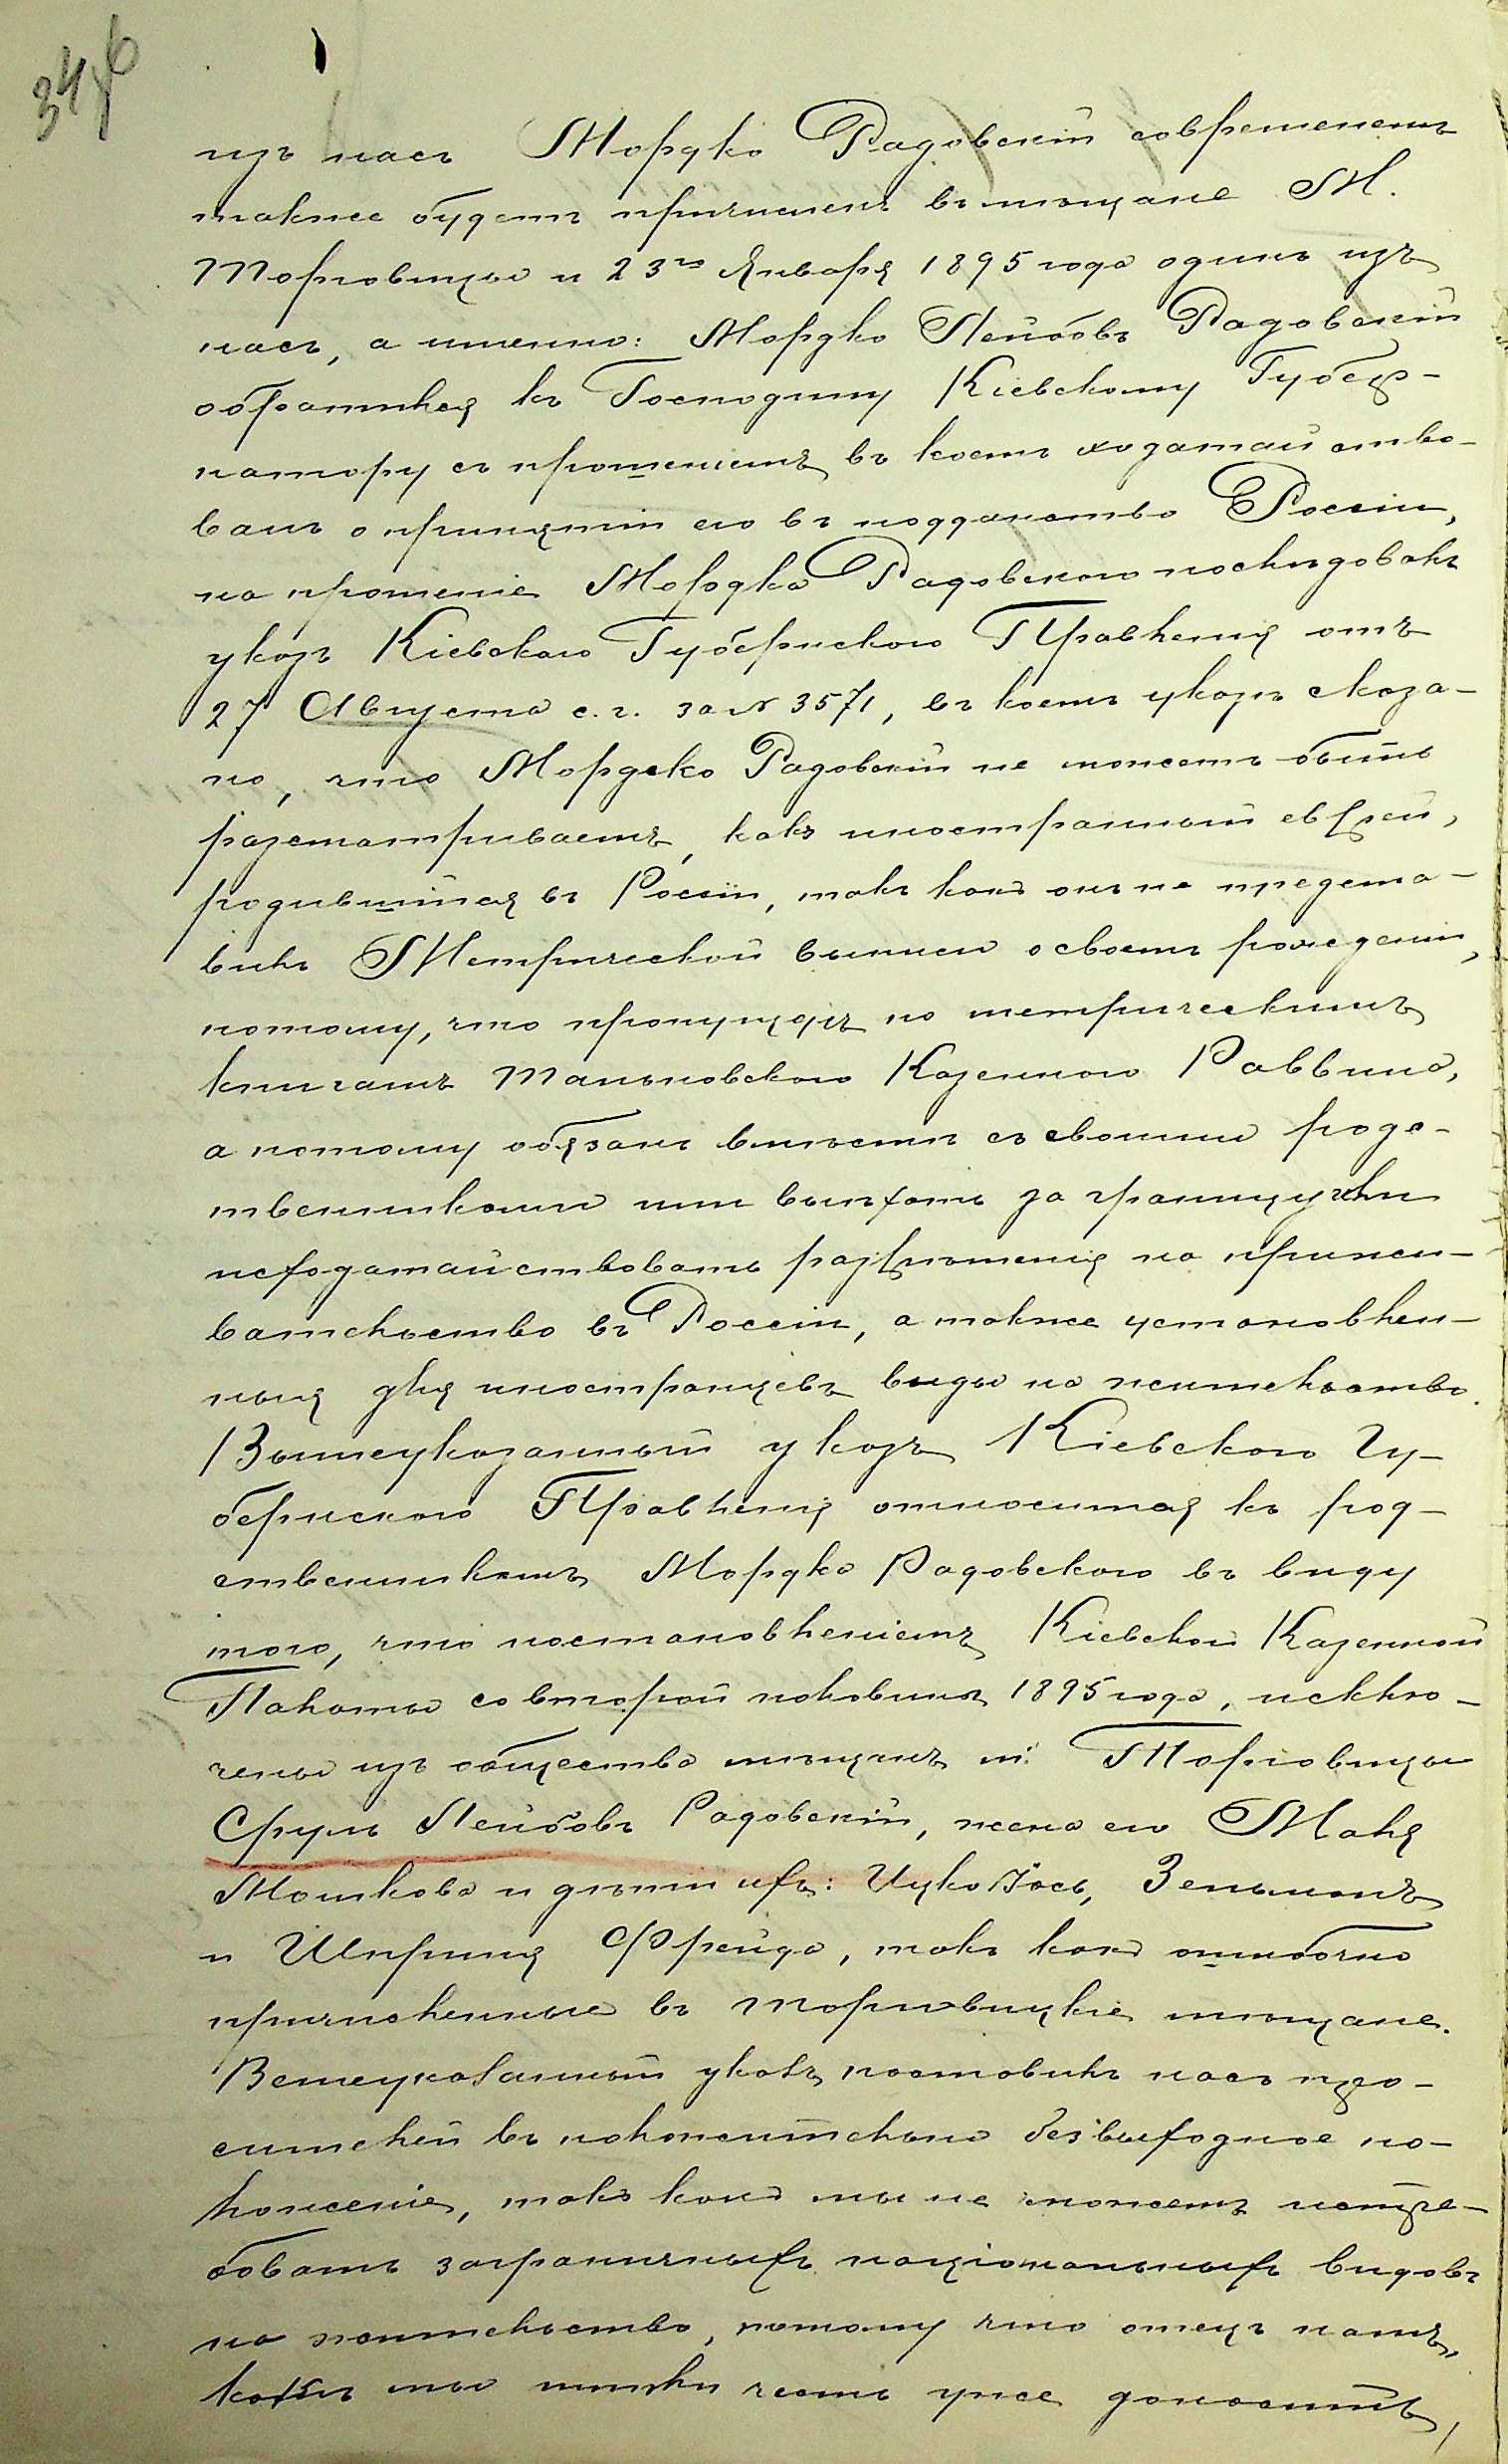 34 об
изъ насъ Мордко Радовскій современемъ
также будетъ причисленъ въ мѣщане М.
Торговицы и 23го Января 1895 года одинъ изъ
насъ, а именно: Мордко Лейбовъ Радовскій
обратился къ Господину Кіевскому Губер-
натору съ прошеніемъ, въ коемъ ходатайство-
валъ о принятіи его въ подданство Россіи,
на прошеніе Мордка Радовскаго послѣдовалъ
указъ Кіевскаго Губернскаго Правленія отъ
27 Августа с. г. за № 3571, въ коемъ указѣ сказа-
но, что Мордко Радовскій не можетъ быть
разсматриваемъ, какъ иностранный еврей,
родившійся въ Россіи, такъ какъ онъ не предста-
вилъ Метрической выписи о своемъ рожденіи,
потому, что пропущенъ по метрическимъ
книгамъ Тальновскаго Казеннаго Раввина,
а потому обязанъ вмѣстѣ съ своими родс-
твенниками или выѣхать за границу или
исходатайствовать разрѣшенія на прижи-
вательство въ Россіи, а также установлен-
ныя для иностранцевъ виды на жительство.
Вышеуказанный указъ Кіевскаго Гу-
бернскаго Правленія относится къ род-
ственникамъ Мордка Радовскаго въ виду
того, что постановленіемъ Кіевской Казенной
Палаты со второй половины 1895 года, исклю-
чены изъ общества мѣщанъ м. Торговицы
Срулъ Лейбовъ Радовскій, жена его Маля
Мошкова и дѣти ихъ: Ицко Іось, Зельманъ
и Шпринця Фрейда, такъ какъ ошибочно
причисленные въ торговицкіе мѣщане.
Вышеуказанный указъ поставилъ насъ про-
сителей въ положительно безвыходное по-
ложеніе, такъ какъ мы не можемъ истре-
бовать заграничныхъ національныхъ видовъ
на жительство, потому что отецъ нашъ,
какъ мы имѣли честь уже доложить,